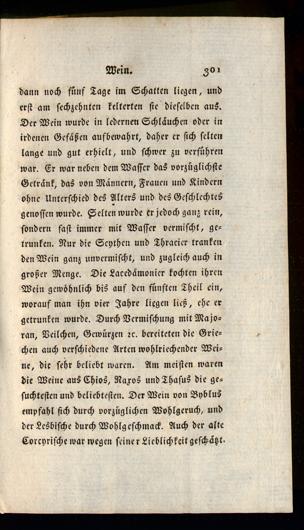 Wein. 301
dann noch fünf Tage im Schatten liegen, und
erst am sechzehnten kelterten sie dieselben aus.
Der Wein wurde in ledernen Schläuchen oder in
irdenen Gefäßen aufbewahrt, daher er sich selten
lange und gut erhielt, und schwer zu verführen
war. Er war neben dem Wasser das vorzüglichste
Getränk, das von Männern, Frauen und Kindern
ohne Unterschied des Alters und des Geschlechtes
genossen wurde. Selten wurde er jedoch ganz rein,
sondern fast immer mit Wasser vermischt, ge-
trunken. Nur die Scythen und Thracier tranken
den Wein ganz unvermischt, und zugleich auch in
großer Menge. Die Lacedämonier kochten ihren
Wein gewöhnlich bis auf den fünften Theil ein,
worauf man ihn vier Jahre liegen ließ, ehe er
getrunken wurde. Durch Vermischung mit Majo-
ran, Veilchen, Gewürzen ꝛc. bereiteten die Grie-
chen auch verschiedene Arten wohlriechender Wei-
ne, die sehr beliebt waren. Am meisten waren
die Weine aus Chios, Naxos und Thasus die ge-
suchtesten und beliebtesten. Der Wein von Byblus
empfahl sich durch vorzüglichen Wohlgeruch, und
der Lesbische durch Wohlgeschmack. Auch der alte
Corcyrische war wegen seiner Lieblichkeit geschätzt.